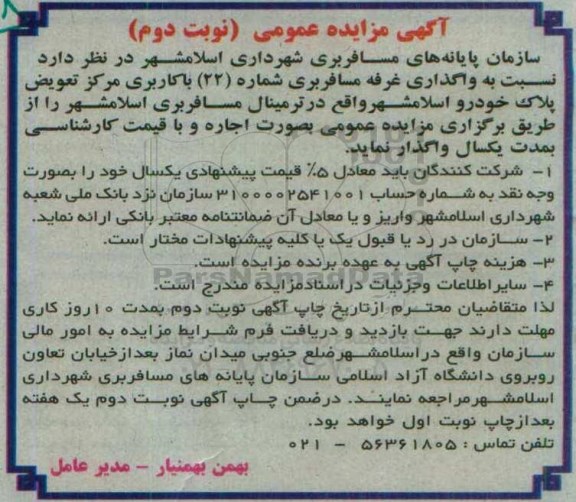 آگهی مزایده عمومی (نوبت دوم)
سازمان پایانه‌های مسافربری شهرداری اسلامشهر در نظر دارد
نسبت به واگذاری غرفه مسافربری شماره (۲۲) باکاربری مرکز تعویض
پلاک خودرو اسلامشهرواقع درترمینال مسافربری اسلامشهر را از
طریق برگزاری مزایده عمومی بصورت اجاره و با قیمت کارشناسی
بمدت یکسال واگذار نماید.
۱- شرکت کنندگان باید معادل ۵٪ قیمت پیشنهادی یکسال خود را بصورت
وجه نقد به شماره حساب ۳۱۰۰۰۰۲۵۴۱۰۰۱ سازمان نزد بانک ملی شعبه
شهرداری اسلامشهر واریز و یا معادل آن ضمانتنامه معتبر بانکی ارائه نماید.
۲- سازمان در رد یا قبول یک یا کلیه پیشنهادات مختار است.
۳- هزینه چاپ آگهی به عهده برنده مزایده است.
ParsNamadData
۴- سایراطلاعات وجزئیات دراسنادمزایده مندرج است.
لذا متقاضیان محترم ازتاریخ چاپ آگهی نوبت دوم بمدت ۱۰روز کاری
مهلت دارند جهت بازدید و دریافت فرم شرایط مزایده به امور مالی
سازمان واقع دراسلامشهرضلع جنوبی میدان نماز بعدازخیابان تعاون
روبروی دانشگاه آزاد اسلامی سازمان پایانه های مسافربری شهرداری
اسلامشهرمراجعه نمایند. درضمن چاپ آگهی نوبت دوم یک هفته
بعدازچاپ نوبت اول خواهد بود.
تلفن تماس : ۵۶۳۶۱۸۰۵ - ۰۲۱
بهمن بهمنیار - مدیر عامل